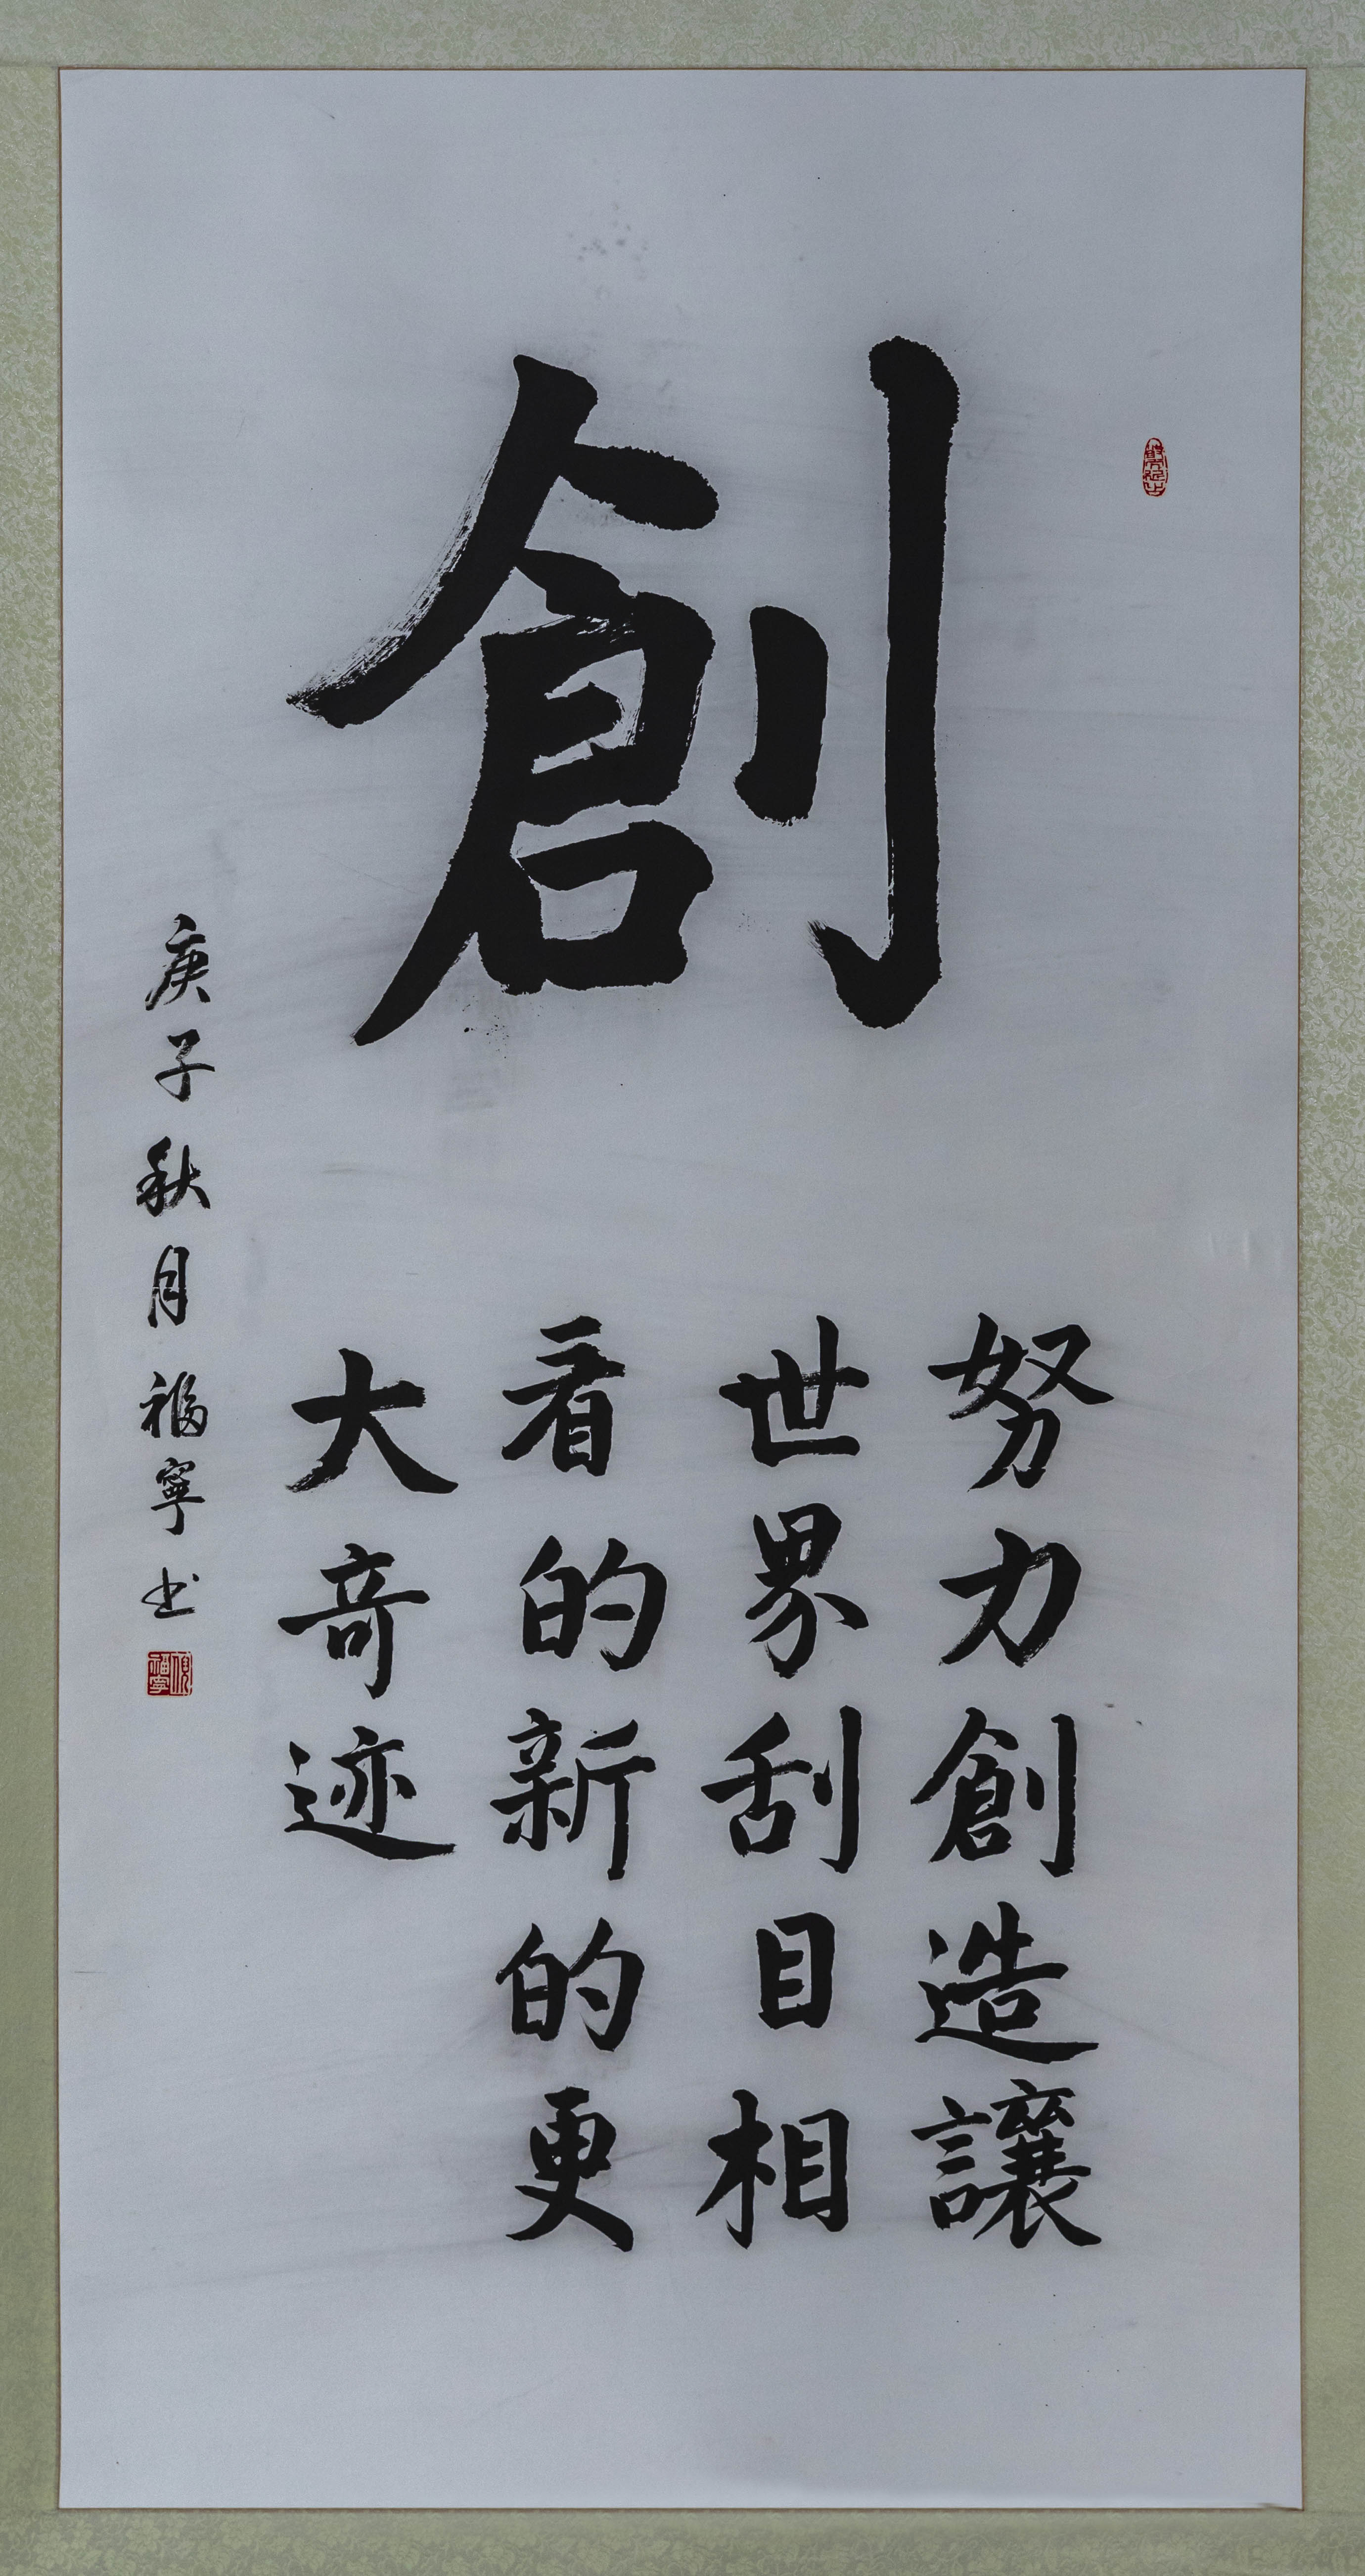 創
努力創造讓
世界刮目相
看的新的更
大奇迹
庚子秋月福寧书